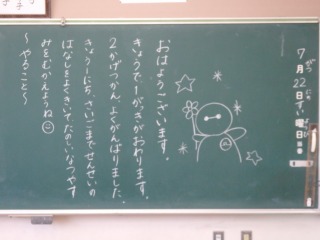 7月22日すい曜日
おはようございます。
きょうで1がっきがおわります。
2かげつかん、よくがんばりました。
きょう一にち、さいごまでせんせいの
はなしをよくきいてたのしいなつやす
みをむかえようね
～やること～